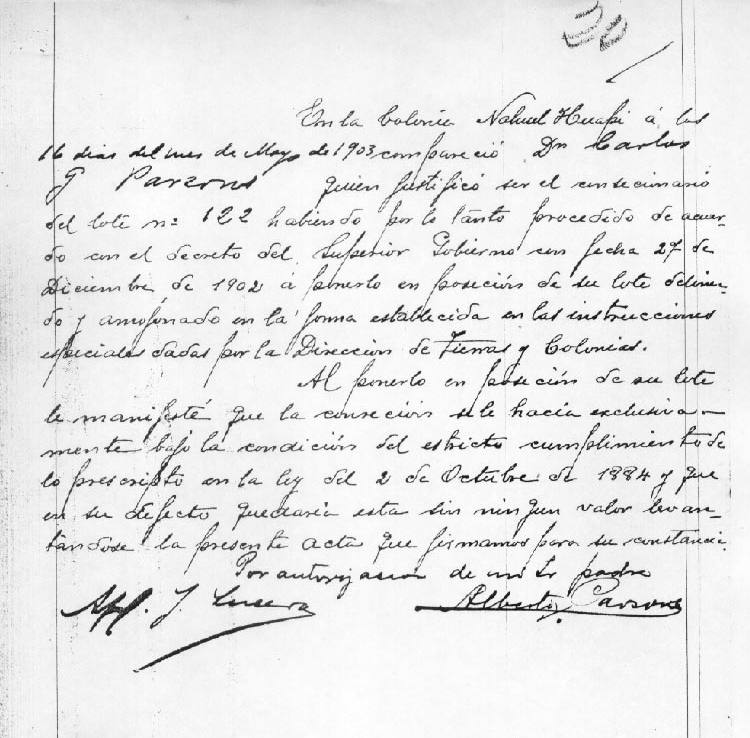 En la Colonia Nahuel Huapi á los
16 dias del mes de Mayo de 1903 compareció Dn Carlos
G Parzons quien justificó ser el consecionario
del lote nº 122 habiendo por lo tanto procedido de acuer-
do con el decreto del Superior Gobierno con fecha 27 de
Diciembre de 1902 á ponerlo en posición de su lote deline-
do y amojonado en la forma establecida en las instrucciones
especiales dadas por la Direccion de Tierras y Colonias.
Al ponerlo en posición de su lote
le manifesté que la conseción se le hacia exclusiva-
mente bajo la condición del estricto cumplimiento de
lo prescripto en la ley del 2 de Octubre de 1884 y que
en su defecto quedaria esta sin ningun valor levan-
tandose la presente acta que firmamos para su constancia.
Por autorizacion de mi Sr padre
Alberto Parzons